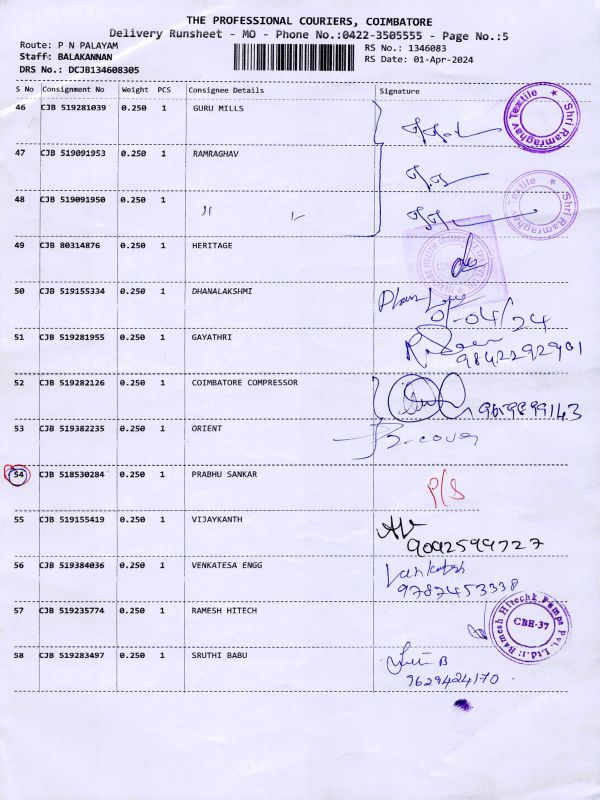 THE PROFESSIONAL COURIERS, COIMBATORE
Delivery Runsheet - MO - Phone No.:0422-3505555 - Page No.:5
Route: P N PALAYAM
RS No.: 1346083
Staff: BALAKANNAN
RS Date: 01-Apr-2024
DRS No.: DCJB134608305
S No Consignment No Weight PCS Consignee Details Signature
46 CJB 519281039 0.250 1 GURU MILLS
Shri Ramraghav Textile
47 CJB 519091953 0.250 1 RAMRAGHAV
48 CJB 519091950 0.250 1 〃
Shri Ramraghav Textile
49 CJB 80314876 0.250 1 HERITAGE
50 CJB 519155334 0.250 1 DHANALAKSHMI
01-04/24
51 CJB 519281955 0.250 1 GAYATHRI
9842292901
52 CJB 519282126 0.250 1 COIMBATORE COMPRESSOR
9659899143
53 CJB 519382235 0.250 1 ORIENT
B-cover
54 CJB 518530284 0.250 1 PRABHU SANKAR P/S
55 CJB 519155419 0.250 1 VIJAYKANTH
9092599727
56 CJB 519384036 0.250 1 VENKATESA ENGG Venkatesh
9787453338
57 CJB 519235774 0.250 1 RAMESH HITECH
Ramesh Hitechk Pumps Pvt. Ltd.
CBE-37
58 CJB 519283497 0.250 1 SRUTHI BABU
9629424170